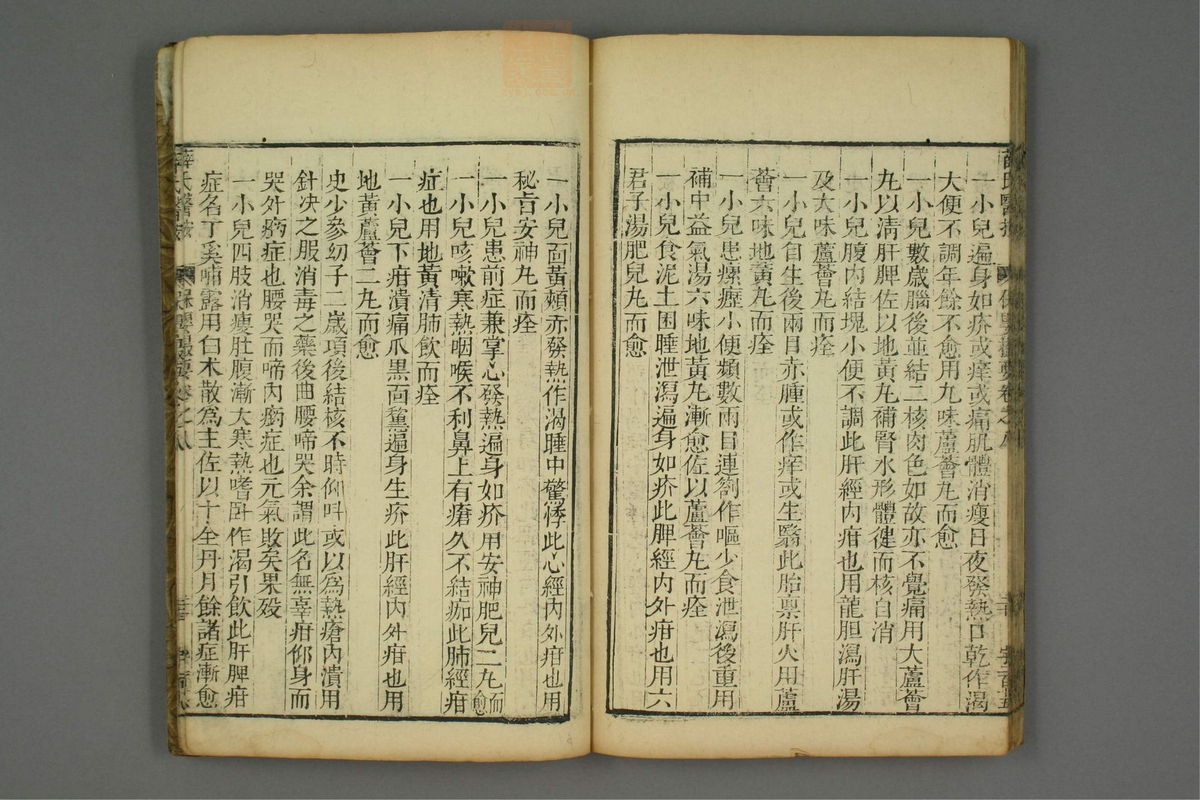 一小兒遍身如疥或痒或痛肌體消瘦日夜發熱口乾作渴
大便不調年餘不愈用九味蘆薈丸而愈
一小兒數歲腦後並結二核肉色如故亦不覺痛用大蘆薈
丸以清肝脾佐以地黃丸補腎水形體健而核自消
一小兒腹內結塊小便不調此肝經內疳也用龍胆瀉肝湯
及大味蘆薈丸而痊
一小兒自生後兩目赤腫或作痒或生翳此胎稟肝火用蘆
薈六味地黃丸而痊
一小兒患瘰癧小便頻數兩目連劄作嘔少食泄瀉後重用
補中益氣湯六味地黃丸漸愈佐以蘆薈丸而痊
一小兒食泥土困睡泄瀉遍身如疥此脾經內外疳也用六
君子湯肥兒丸而愈
一小兒面黃頰赤發熱作渴睡中驚悸此心經內外疳也用
秘旨安神丸而痊
一小兒患前症兼掌心發熱遍身如疥用安神肥兒二丸而愈
一小兒咳嗽寒熱咽喉不利鼻上有瘡久不結痂此肺經疳
症也用地黃清肺飲而痊
一小兒下疳潰痛爪黑面黧遍身生疥此肝經內外疳也用
地黃蘆薈二丸而愈
史少參幼子二歲項後結核不時仰叫或以為熱瘡內潰用
針決之服消毒之藥後曲腰啼哭余謂此名無辜疳仰身而
哭外痾症也腰哭而啼內痾症也元氣敗矣果歿
一小兒四肢消瘦肚腹漸大寒熱嗜臥作渴引飲此肝脾疳
症名丁奚哺露用白朮散為主佐以十全丹月餘諸症漸愈
薛氏醫按
保嬰撮要卷之八